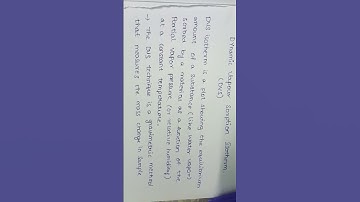 Dynamic Vapour Sorption Isotherm
(DVS)
DVS Isotherm is a plot showing the equilibrium
amount of a substance (like water vapor)
sorbed by a material as a function of the
Partial vapor pressure (or relative humidity)
at a constant temperature.
→ The DVS technique is a gravimetric method
that measures the mass change in sample